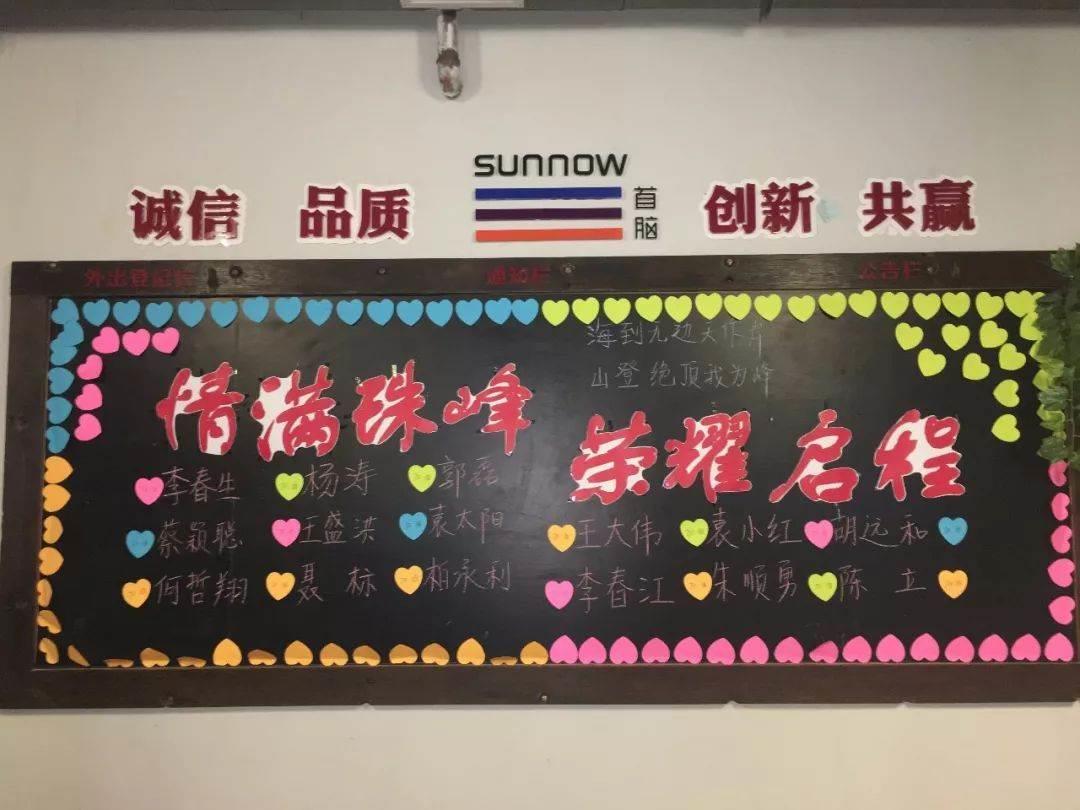 SUNNOW
诚信 品质 首脑 创新 共赢
外出登记栏 通知栏 公告栏
海到九边天作岸
山登绝顶我为峰
情满珠峰
荣耀启程
李春生 杨涛 郭磊
蔡颖聪 王盛洪 袁太阳
何哲翔 聂标 柏承利
王大伟 袁小红 胡远和
李春江 朱顺勇 陈立